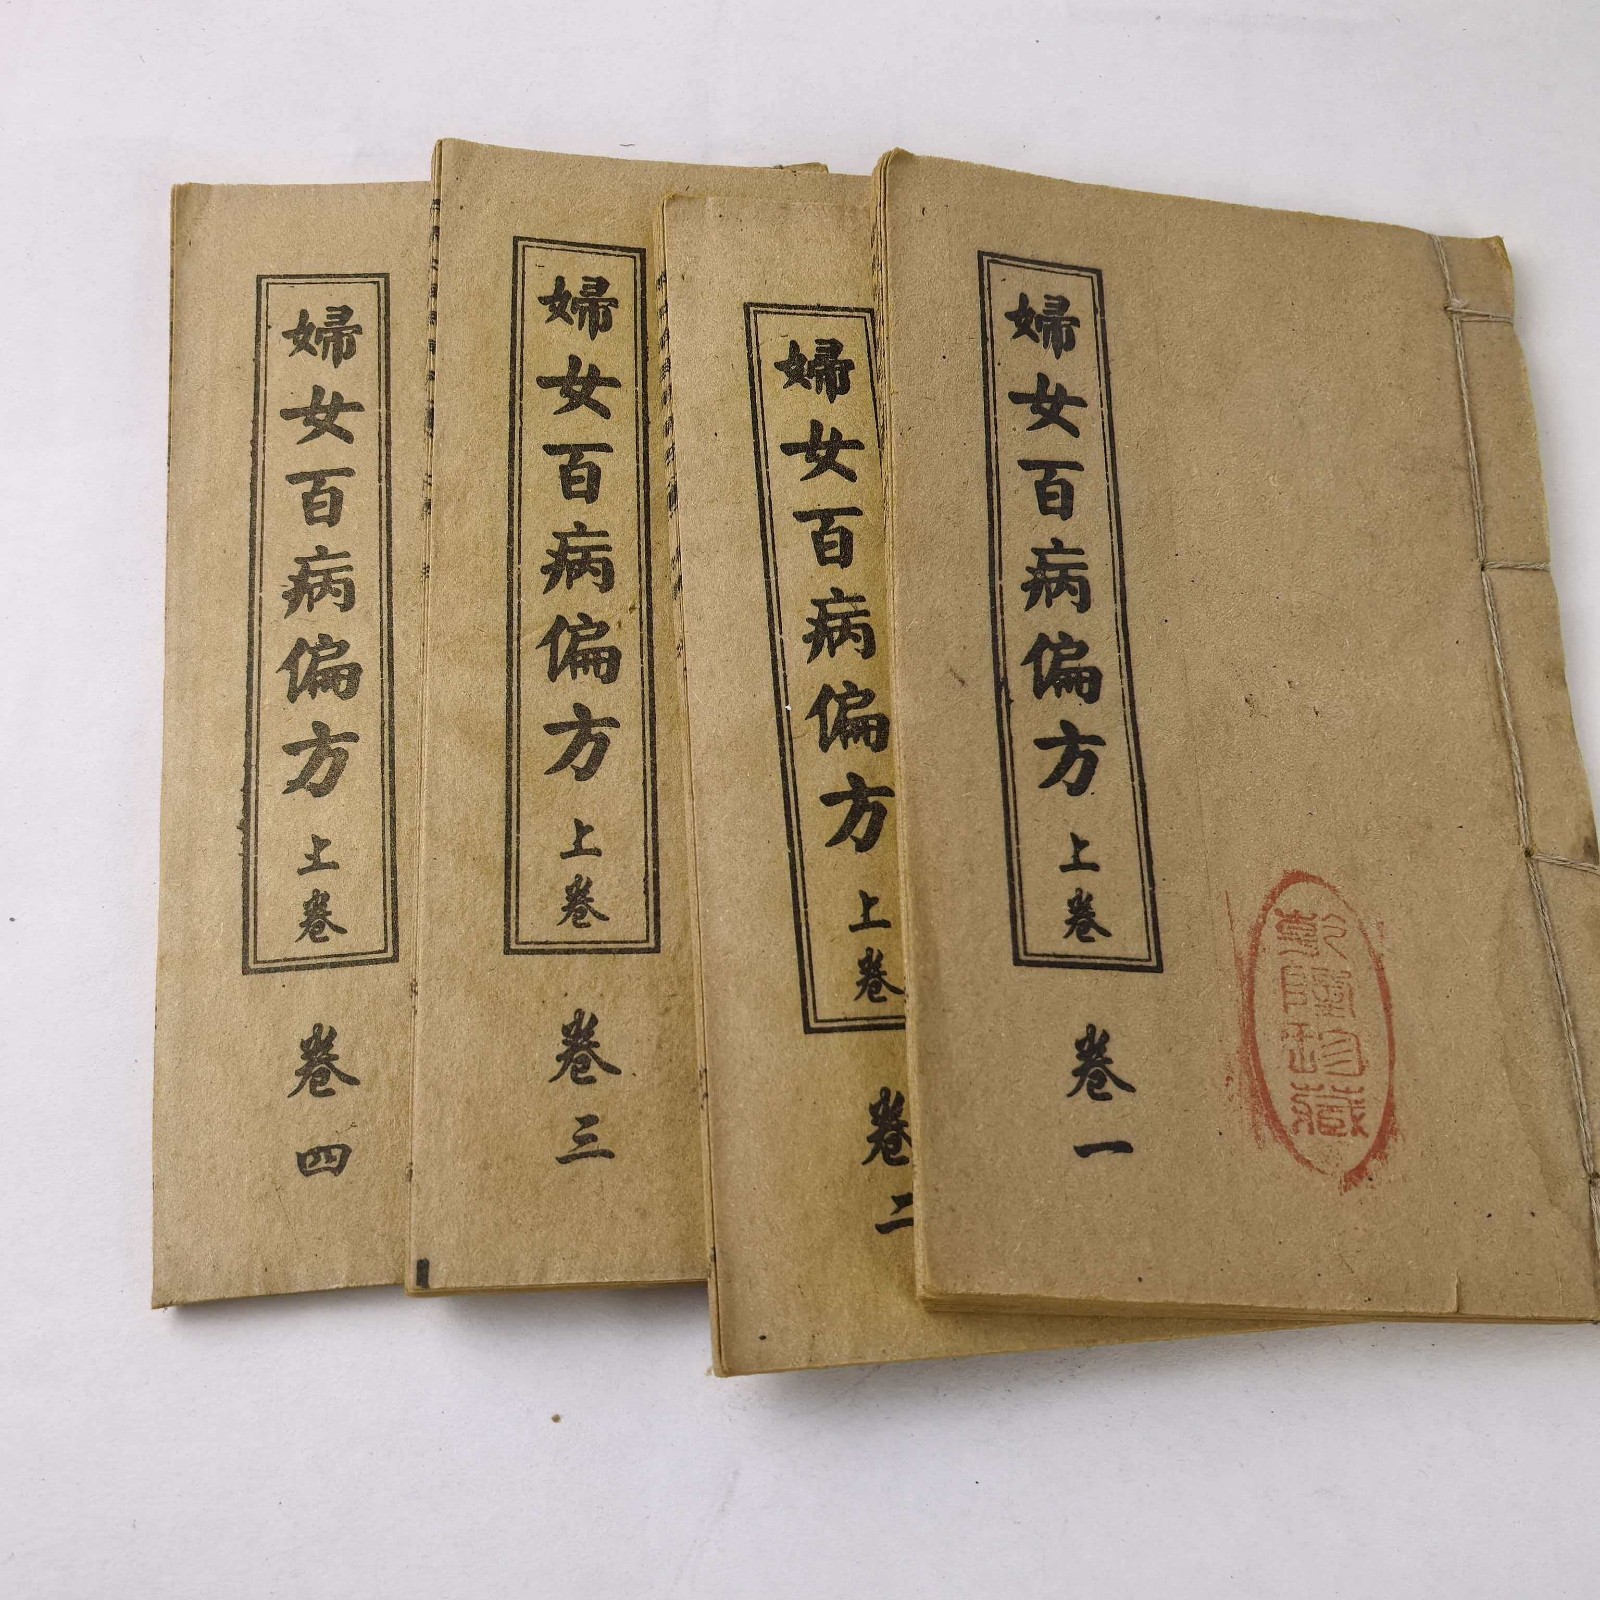 婦女百病偏方上卷
卷一
婦女百病偏方上卷
卷二
婦女百病偏方上卷
卷三
婦女百病偏方上卷
卷四